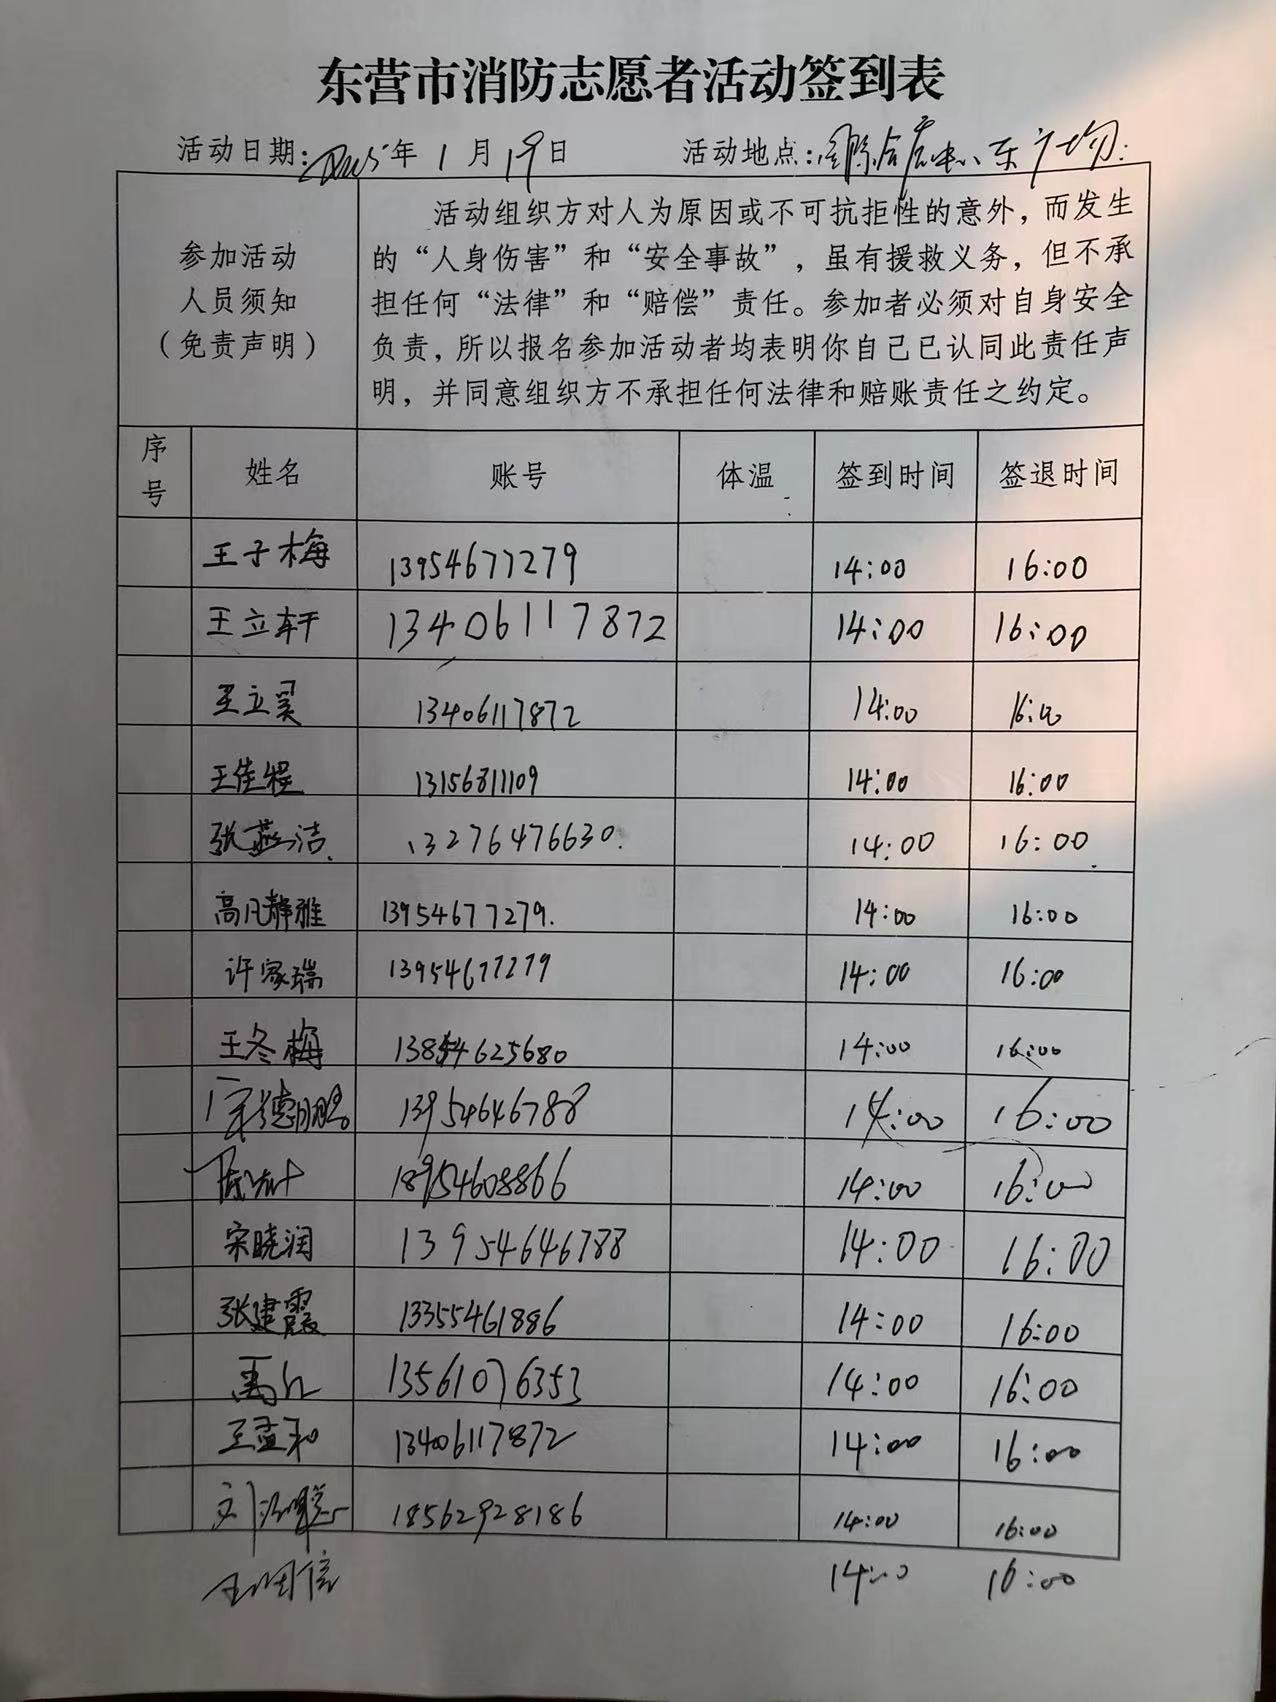 东营市消防志愿者活动签到表
活动日期:2025年1月19日 活动地点:东广场
参加活动
人员须知
(免责声明)
活动组织方对人为原因或不可抗拒性的意外，而发生
的“人身伤害”和“安全事故”，虽有援救义务，但不承
担任何“法律”和“赔偿”责任。参加者必须对自身安全
负责，所以报名参加活动者均表明你自己已认同此责任声
明，并同意组织方不承担任何法律和赔账责任之约定。
序号 姓名 账号 体温 签到时间 签退时间
王子梅 13954677279 14:00 16:00
王立轩 13406117872 14:00 16:00
王立奚 13406117872 14:00 16:00
王佳程 13156811109 14:00 16:00
张燕洁 13276476630. 14:00 16:00
高凡静雅 13954677279. 14:00 16:00
许家瑞 13954677279 14:00 16:00
王冬梅 13854625680 14:00 16:00
宋德鹏 13954646788 14:00 16:00
18954608866 14:00 16:00
宋晓润 13954646788 14:00 16:00
张建霞 13355461886 14:00 16:00
13561076353 14:00 16:00
王孟和 13406117872 14:00 16:00
18562928186 14:00 16:00
14:00 16:00